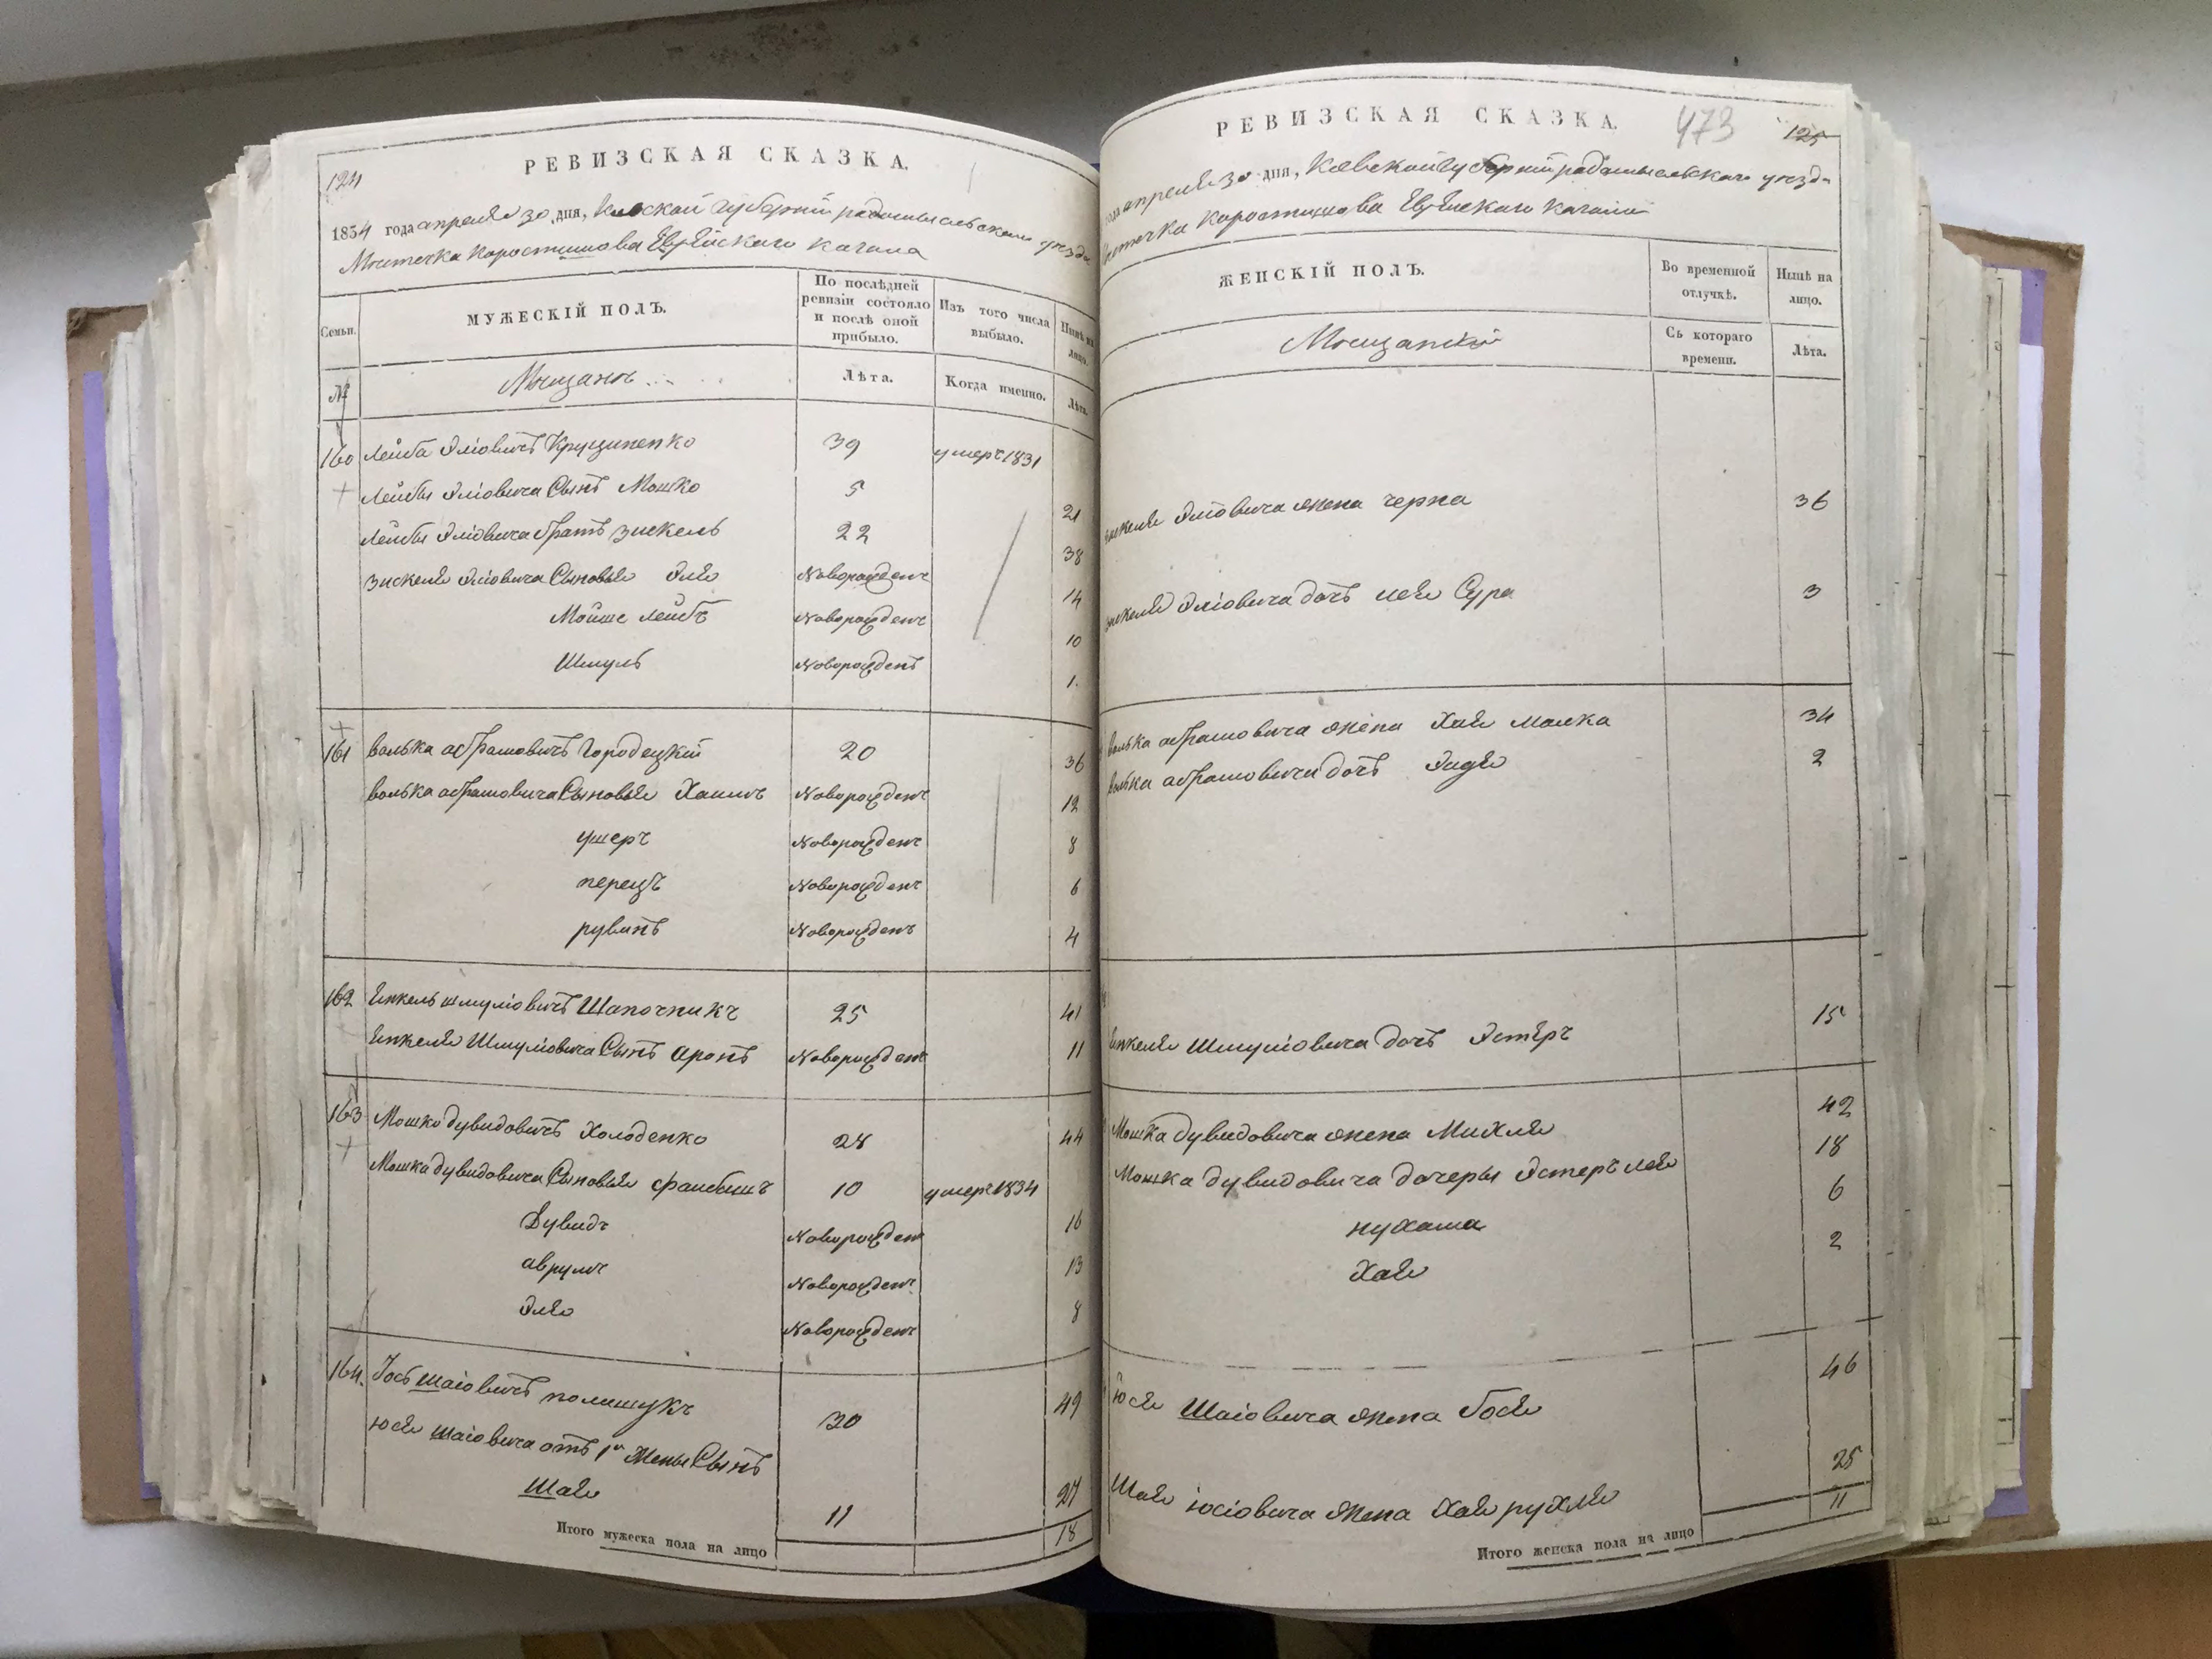 124
РЕВИЗСКАЯ СКАЗКА.
1834 года апреля 30 дня, Киевской губернии радомысльскаго уезда
Местечка Коростишова Еврейскаго кагала
Семьи. МУЖЕСКІЙ ПОЛЪ. По послѣдней ревизіи состояло и послѣ оной прибыло. Изъ того числа выбыло. Нынѣ на лицо.
№ Мещанъ Лѣта. Когда именно. Лѣта.
160 Лейба Эліовичъ Крущиненко 39 умеръ 1831
Лейбы Эліовича Сынъ Мошко 5 21
Лейбы Эліовича братъ Зискель 22 38
Зискеля Эліовича Сыновья Эля Новорожденъ 14
Мойше Лейбъ Новорожденъ 10
Шмуль Новорожденъ 1.
161 Волька абрамовичъ Городецкій 20 36
Волька абрамовича Сыновья Хаимъ Новорожденъ 12
Ушеръ Новорожденъ 8
перецъ Новорожденъ 6
рувинъ Новорожденъ 4
162 Янкель шмуліовичъ Шапочникъ 25 41
Янкеля Шмуліовича Сынъ аронъ Новорожденъ 11
163 Мошко дувидовичъ Холоденко 28 44
Мошка дувидовича Сыновья файбишъ 10 умеръ 1834
Дувидъ Новорожденъ 16
аврумъ Новорожденъ 13
Эля Новорожденъ 8
164. Іось шаіовичъ полищукъ 30 49
Юся шаіовича отъ 1й Жены Сынъ
Шая 11 27
Итого мужеска пола на лицо 18
РЕВИЗСКАЯ СКАЗКА. 473 125
года апреля 30 дня, Киевской губерніи радомысльскаго уезда
Местечка Коростишова Еврейскаго кагала
ЖЕНСКІЙ ПОЛЪ. Во временной отлучкѣ. Нынѣ на лицо.
Мещанской Съ котораго времени. Лѣта.
Зискеля Эліовича жена черна 36
Зискеля Эліовича дочь лея Сура 3
Волька абрамовича жена Хая малка 34
Волька абрамовича дочь Эидя 2
Янкеля Шмуліовича дочь Эстеръ 15
Мошка дувидовича жена Михля 42
Мошка дувидовича дочеры Эстеръ лея 18
нухама 6
Хая 2
Юся Шаіовича жена Бося 46
Шая іосіовича жена Хая рухля 25
Итого женска пола на лицо 11